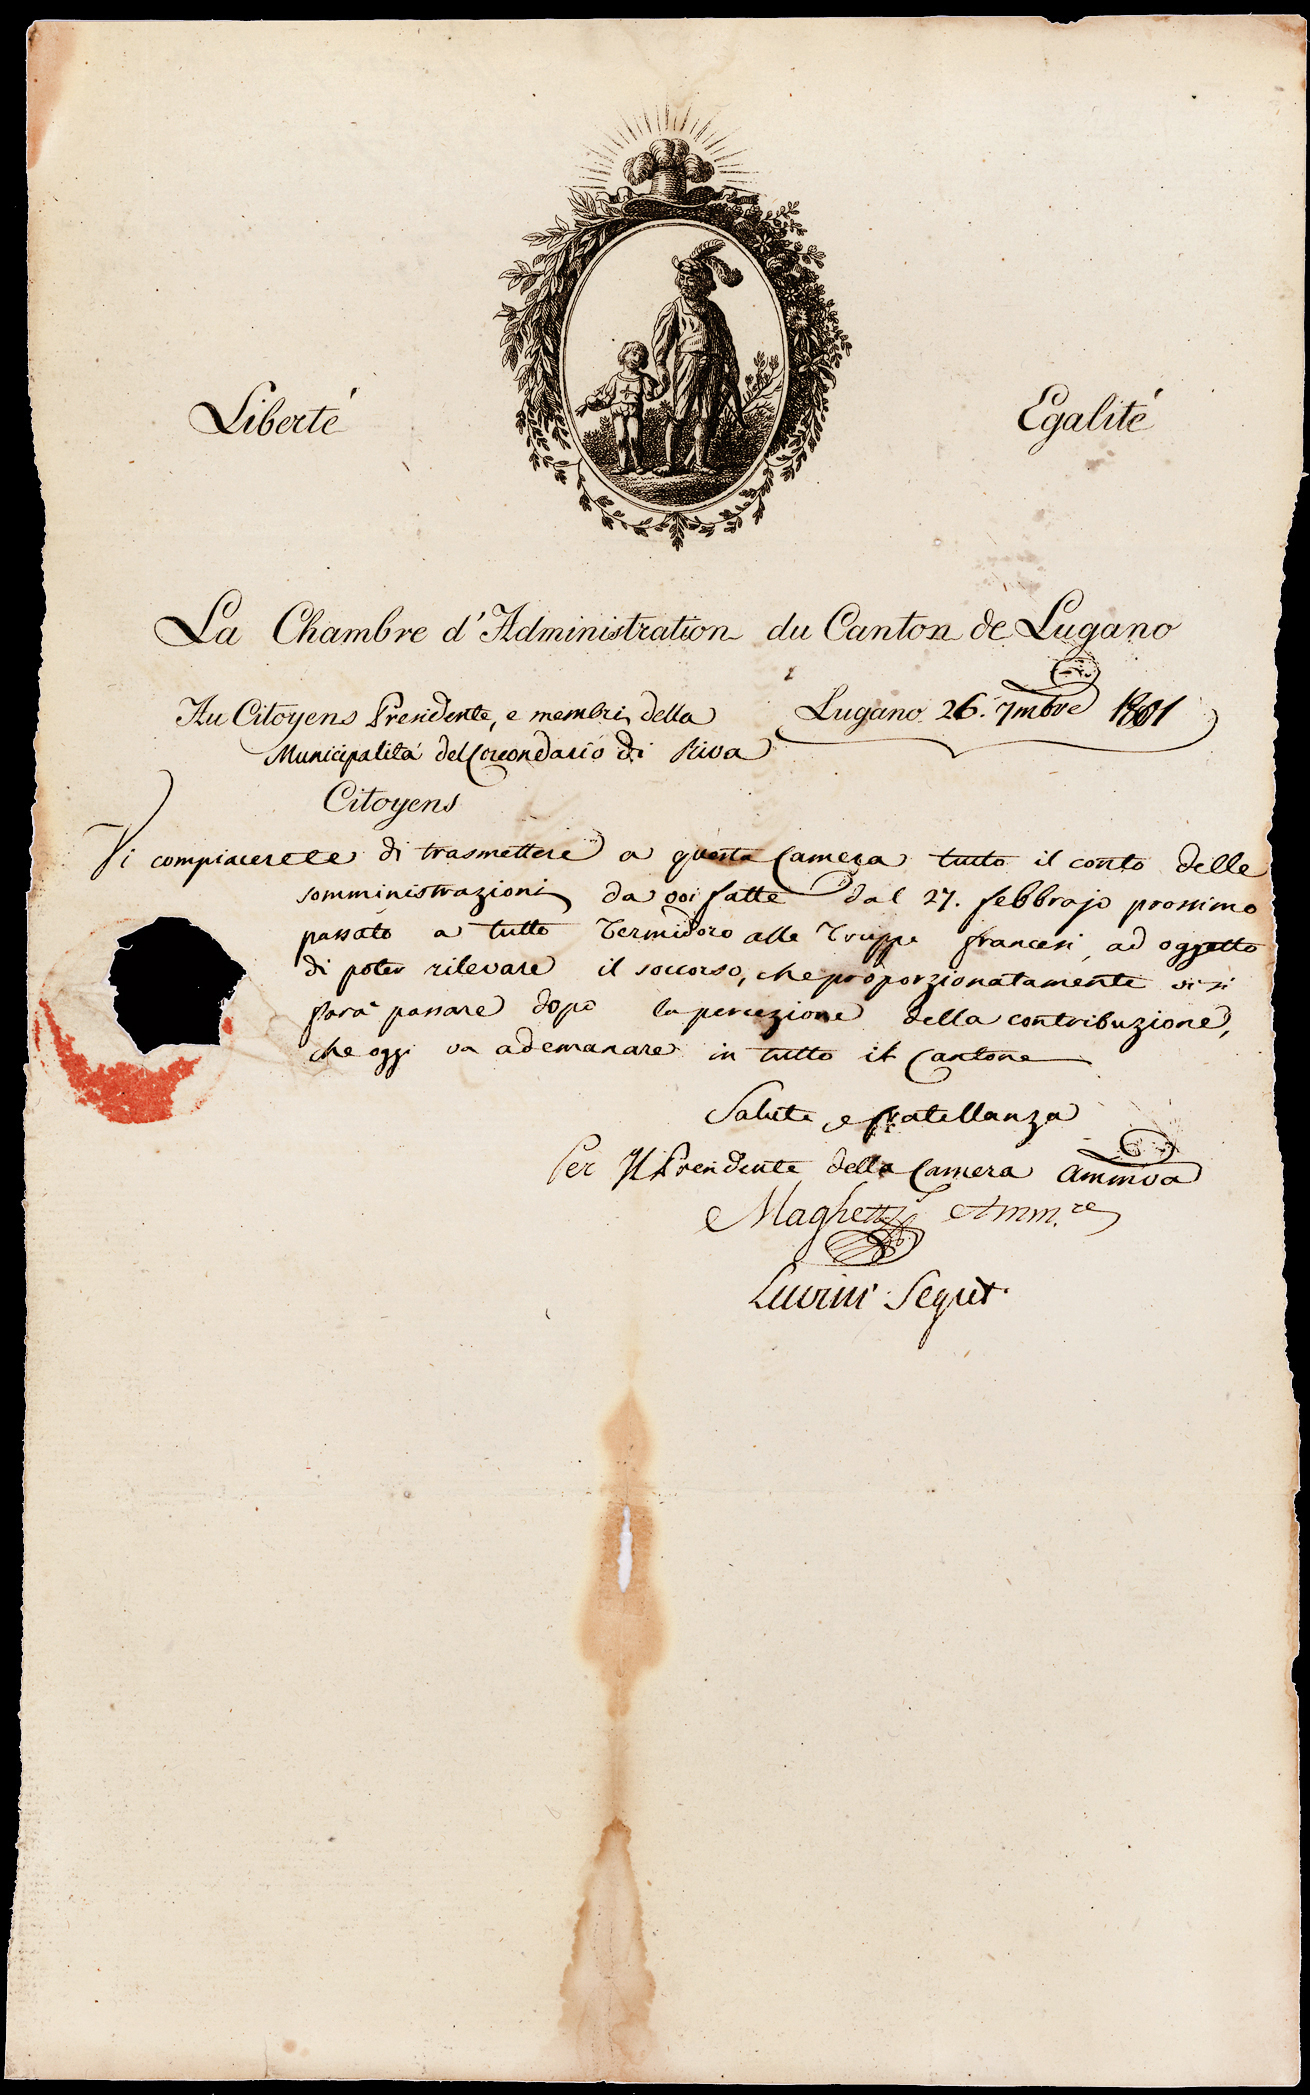 Liberté
Egalité
La Chambre d'Administration du Canton de Lugano
Lugano 26. 7mbre 1801
Au Citoyens Presidente, e membri della
Municipalità del Circondario di Riva
Citoyens
Vi compiacerete di trasmettere a questa Camera tutto il conto delle
somministrazioni da voi fatte dal 27. febbrajo prossimo
passato a tutto Termidoro alle Truppe francesi, ad oggetto
di poter rilevare il soccorso, che proporzionatamente vi si
farà passare dopo la percezione della contribuzione,
che oggi va ademanare in tutto il Cantone
Salute, e fratellanza
Per Il Presidente della Camera Ammva
Maghetti Amm.re
Luvini Segret.